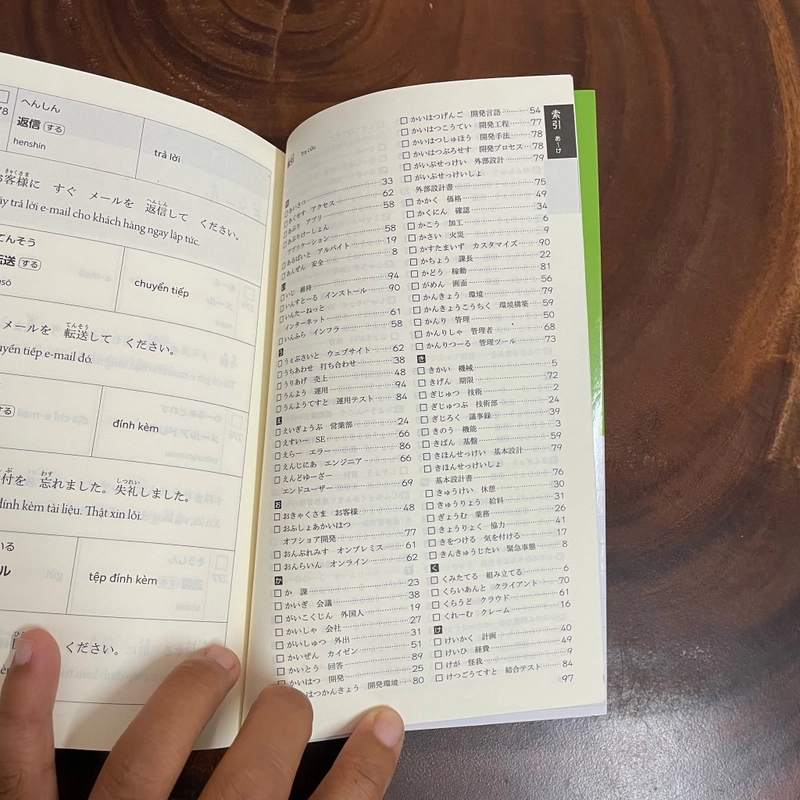 78
へんしん
返信 する
henshin
trả lời
お客様に すぐ メールを 返信して ください。
きゃくさま へんしん
trả lời e-mail cho khách hàng ngay lập tức.
てんそう
転送 する
chuyển tiếp
メールを 転送して ください。
てんそう
tiếp e-mail đó.
する
đính kèm
忘れました。失礼しました。
わす しつれい
đính kèm tài liệu. Thật xin lỗi.
tệp đính kèm
ください。
Tra cứu
あいさつ 33
あくせす アクセス 62
あぷり アプリ 58
あぷりけーしょん
アプリケーション 58
あるばいと アルバイト 19
あんぜん 安全 8
いじ 維持 94
いんすとーる インストール 90
いんたーねっと
インターネット 61
いんふら インフラ 58
う
うぇぶさいと ウェブサイト 62
うちあわせ 打ち合わせ 38
うりあげ 売上 48
うんよう 運用 94
うんようてすと 運用テスト 84
え
えいぎょうぶ 営業部 24
えすいー SE 66
えらー エラー 86
えんじにあ エンジニア 66
えんどゆーざー
エンドユーザー 69
お
おきゃくさま お客様 48
おふしょあかいはつ
オフショア開発 77
おんぷれみす オンプレミス 61
おんらいん オンライン 62
か
か 課 23
かいぎ 会議 38
がいこくじん 外国人 19
かいしゃ 会社 27
がいしゅつ 外出 31
かいぜん カイゼン 51
かいとう 回答 89
かいはつ 開発 25
はつかんきょう 開発環境 80
かいはつげんご 開発言語 54
かいはつこうてい 開発工程 77
かいはつしゅほう 開発手法 78
かいはつぷろせす 開発プロセス 78
がいぶせっけい 外部設計 79
がいぶせっけいしょ
外部設計書 75
かかく 価格 49
かくにん 確認 34
かこう 加工 6
かさい 火災 9
かすたまいず カスタマイズ 90
かちょう 課長 22
かどう 稼動 81
がめん 画面 56
かんきょう 環境 79
かんきょうこうちく 環境構築 59
かんり 管理 50
かんりしゃ 管理者 68
かんりつーる 管理ツール 73
き
きかい 機械 5
きげん 期限 72
ぎじゅつ 技術 2
ぎじゅつぶ 技術部 24
ぎじろく 議事録 39
きのう 機能 3
きばん 基盤 59
きほんせっけい 基本設計 79
きほんせっけいしょ
基本設計書 76
きゅうけい 休憩 30
きゅうりょう 給料 31
ぎょうむ 業務 26
きょうりょく 協力 41
きをつける 気を付ける 17
きんきゅうじたい 緊急事態 8
く
くみたてる 組み立てる 6
くらいあんと クライアント 70
くらうど クラウド 61
くれーむ クレーム 16
け
けいかく 計画 40
けいひ 経費 49
けが 怪我 9
けつごうてすと 結合テスト 84
97
索引 あ~け